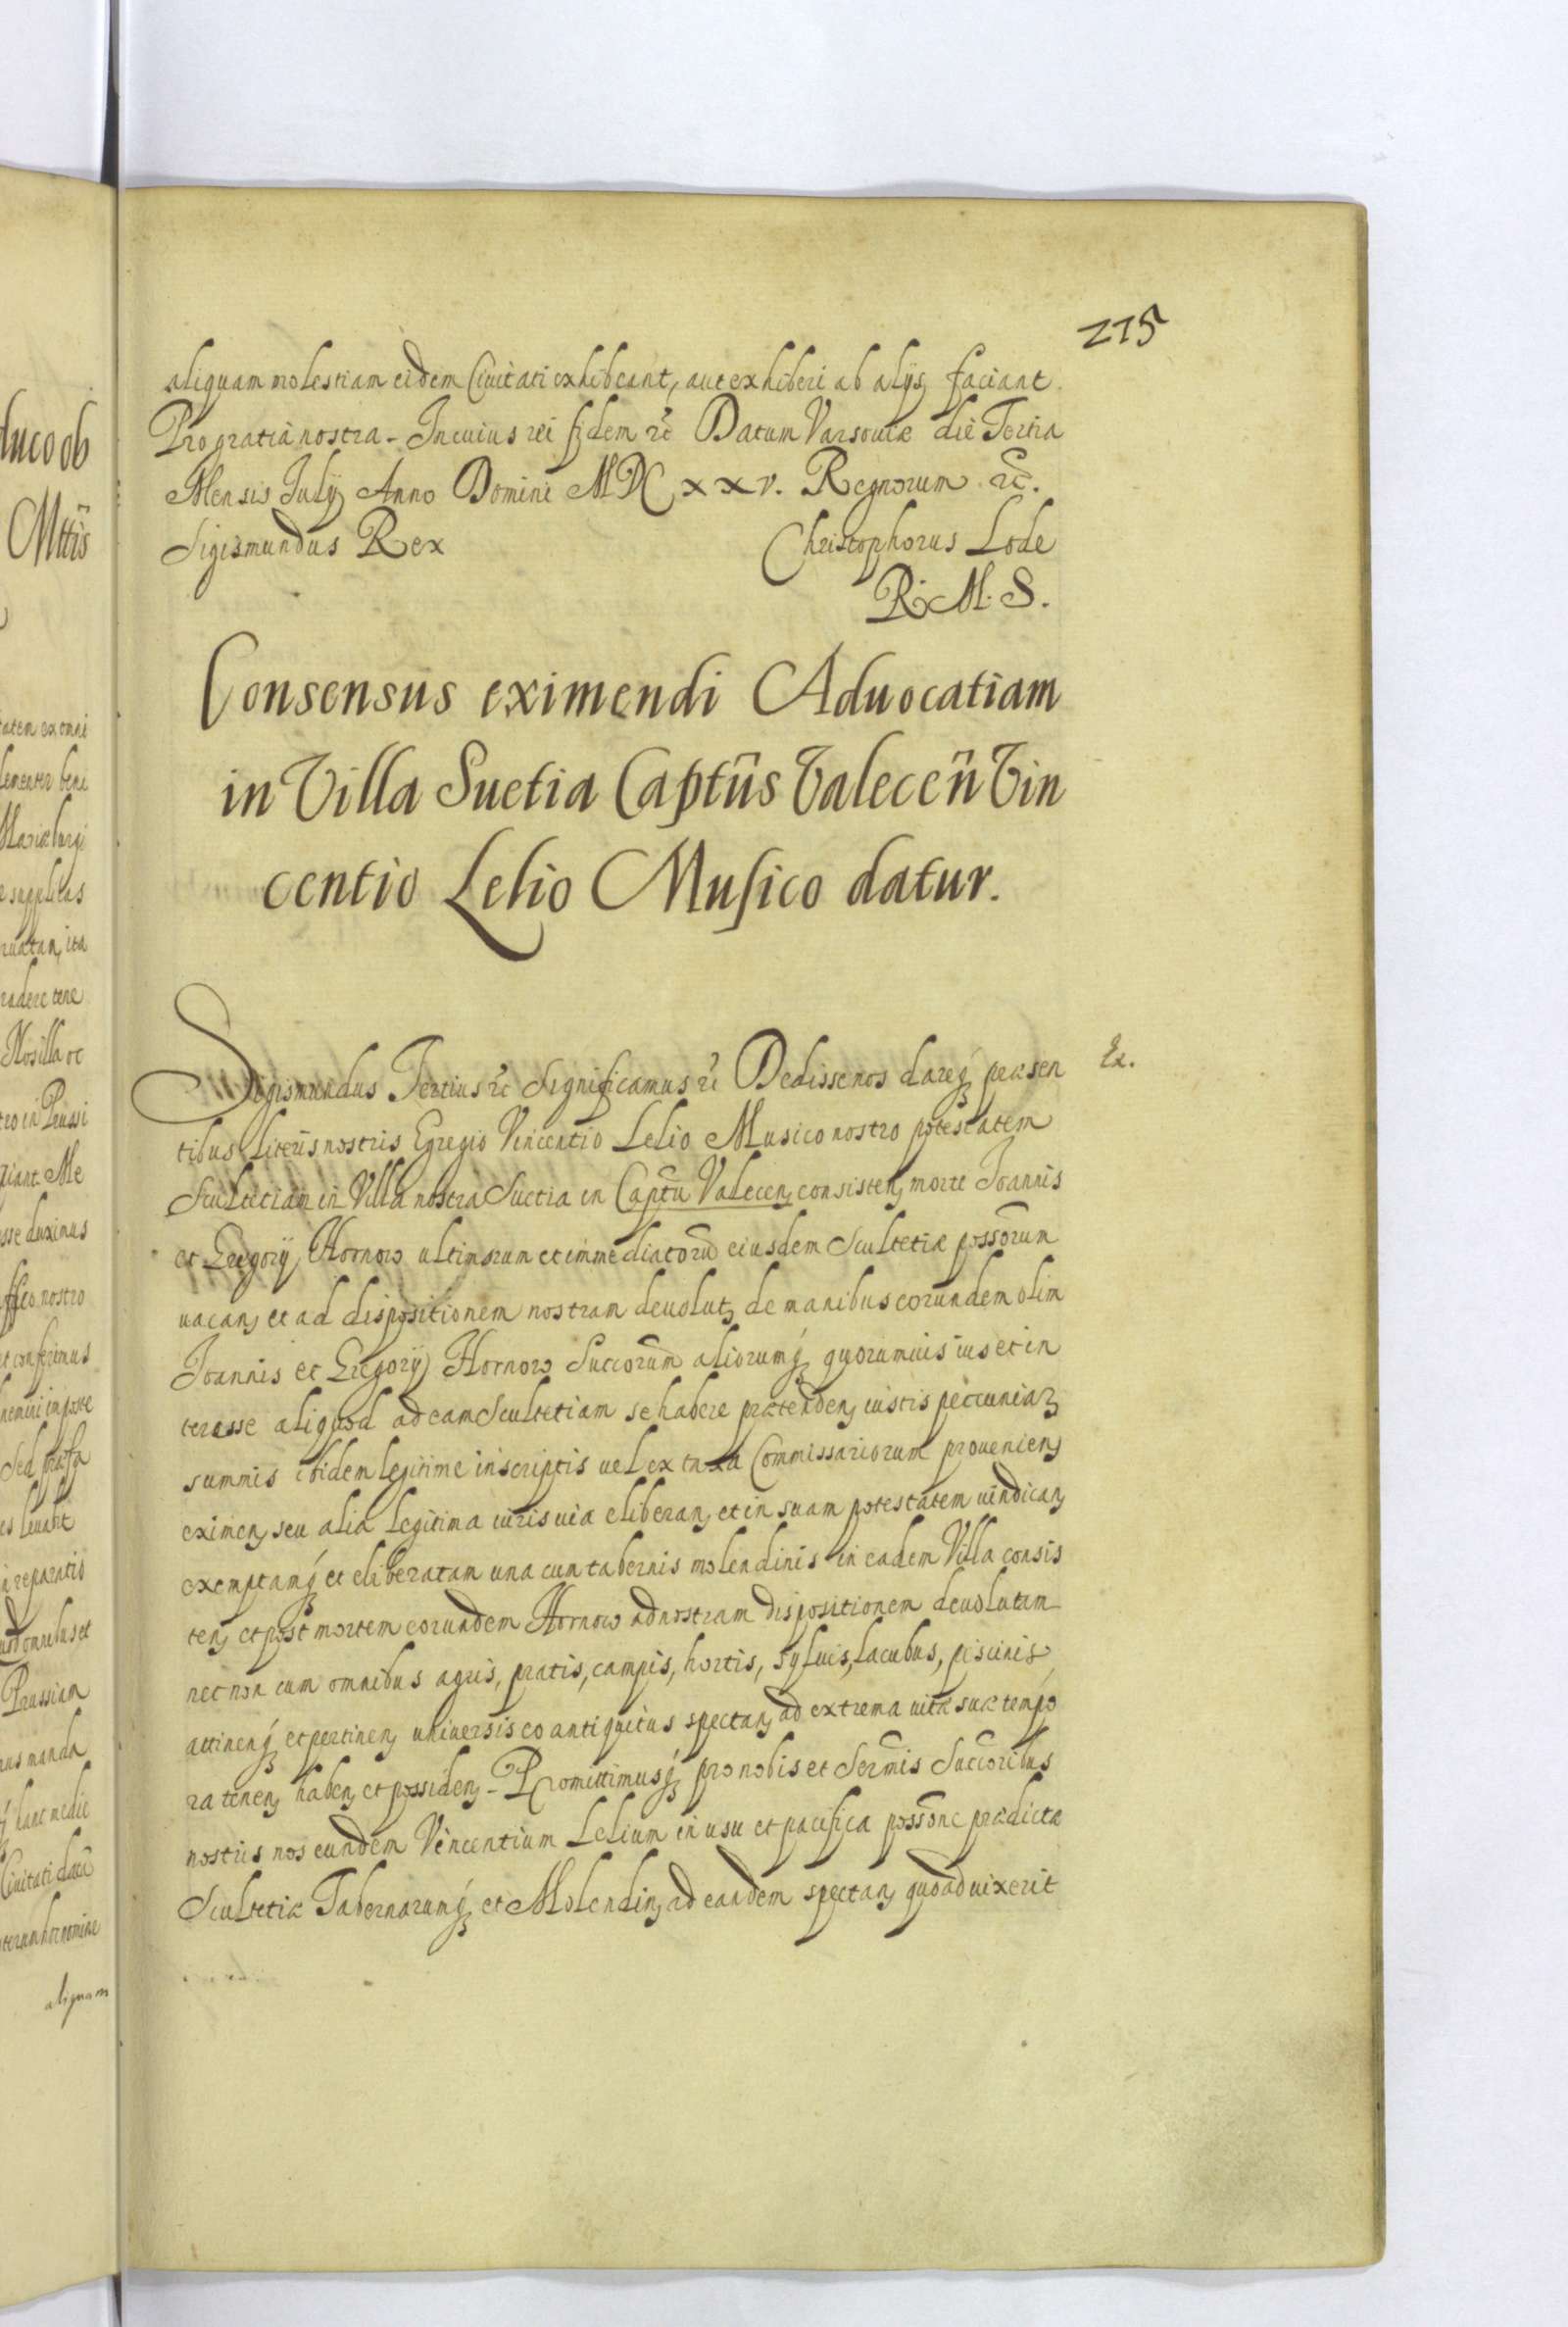 275
aliquam molestiam eidem Ciuitati exhibeant, aut exhiberi ab alijs faciant.
Pro gratia nostra - In cuius rei fidem etc̃ Datum Varsouiæ die Tertia
Mensis Julij Anno Domini MDCXXV. Regnorum etc̃.
Sigismundus Rex Christophorus Lode
R. M. S.
Consensus eximendi Aduocatiam
in Villa Suetia Captũs Valeceñ Vin
centio Lelio Musico datur.
Ex.
Sigismundus Tertius etc̃ Significamus etc̃ Dedisse nos dareq́ꝫ præsen
tibus literis nostris Egregio Vincentio Lelio Musico nostro potestatem
Scultetiam in Villa nostra Suetia in Captũ Valecenꝫ consistenꝫ morte Joannis
et Gregorij Hornow ultimorum et immediatorũ eiusdem Scultetiæ possõrum
uacanꝫ et ad dispositionem nostram deuolutꝫ de manibus eorundem olim
Joannis et Gregorij Hornow Succorũm aliorumq́ꝫ quorumuis ius et in
teresse aliquod ad eam Scultetiam se habere prætendenꝫ iustis pecuniarꝫ
summis ibidem legitime inscriptis uel ex taxa Commissariorum prouenienꝫ
eximenꝫ seu alia legitima iuris uia eliberanꝫ et in suam potestatem uindicanꝫ
exemptamq́ꝫ et eliberatam una cum tabernis molendinis in eadem Villa consis
tenꝫ et post mortem eorundem Hornow ad nostram dispositionem deuolutam
nec non cum omnibus agris, pratis, campis, hortis, syluis, lacubus, piscinis
attinenq́ꝫ et pertinenꝫ uniuersis eo antiquitus spectanꝫ ad extrema uitæ suæ tempo
ra tenenꝫ habenꝫ et possidenꝫ - Promittimusq́ꝫ pro nobis et Sermĩs Succoribũs
nostris nos eundem Vincentium Lelium in usu et pacifica possõne prædictæ
Scultetiæ Tabernarumq́ꝫ et Molendinꝫ ad eandem spectanꝫ quoad uixerit